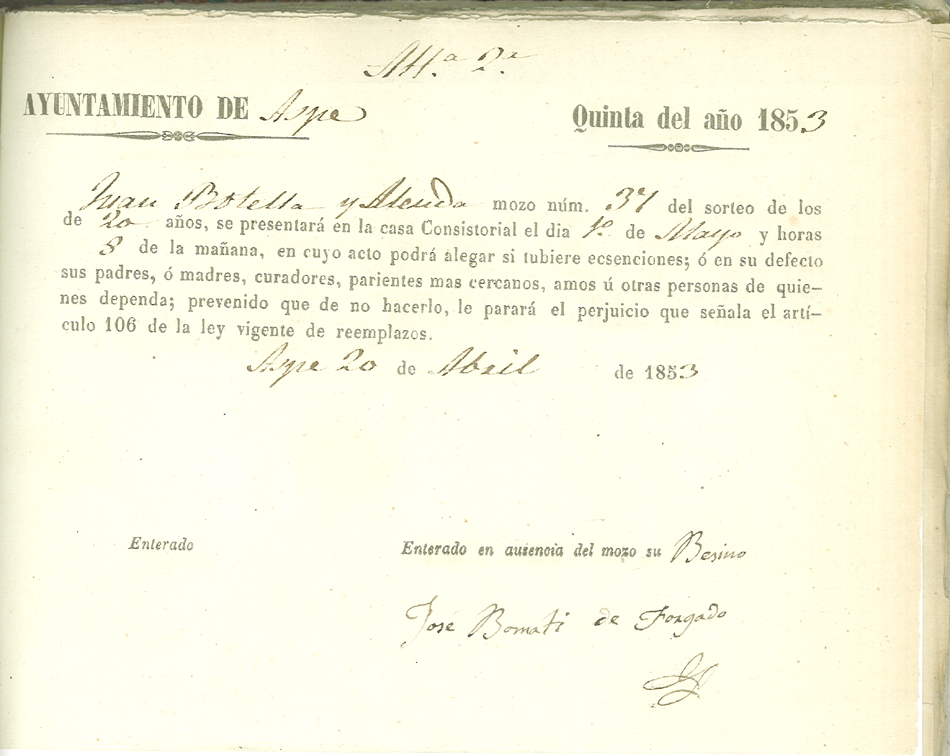 Att.ª 2.ª
AYUNTAMIENTO DE Aspe
Quinta del año 1853
Juan Botella y Alenda mozo núm. 37 del sorteo de los
de 20 años, se presentará en la casa Consistorial el dia 1º de Mayo y horas
8 de la mañana, en cuyo acto podrá alegar si tubiere ecsenciones; ó en su defecto
sus padres, ó madres, curadores, parientes mas cercanos, amos ú otras personas de quie-
nes dependa; prevenido que de no hacerlo, le parará el perjuicio que señala el artí-
culo 106 de la ley vigente de reemplazos.
Aspe 20 de Abril de 1853
Enterado
Enterado en ausencia del mozo su Besino
José Bomati de Forgado